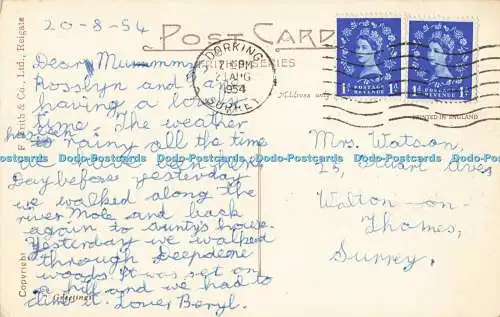 20-8-54
POST CARD
Dear Mummy
Rosslyn and I are
having a lovely
time. The weather
hasn't
rainy all the time
Day before yesterday
we walked along the
river Mole and back
again to aunty's house.
Yesterday we walked
through Deepdene
woods. It was set on
a hill and we had to
climb it. Love, Beryl.
Greetings
Copyright
F. Frith & Co., Ltd., Reigate
SERIES
Address only
DORKING
PM
AUG
1954
SURREY
POSTAGE REVENUE
1D
1D
POSTAGE REVENUE
1D
1D
PRINTED IN ENGLAND
Mrs. Watson,
Walton-on-
Thames,
Surrey.
Dodo-Postcards Dodo-Postcards Dodo-Postcards Dodo-Postcards Dodo-Postcards Dodo-Postcards